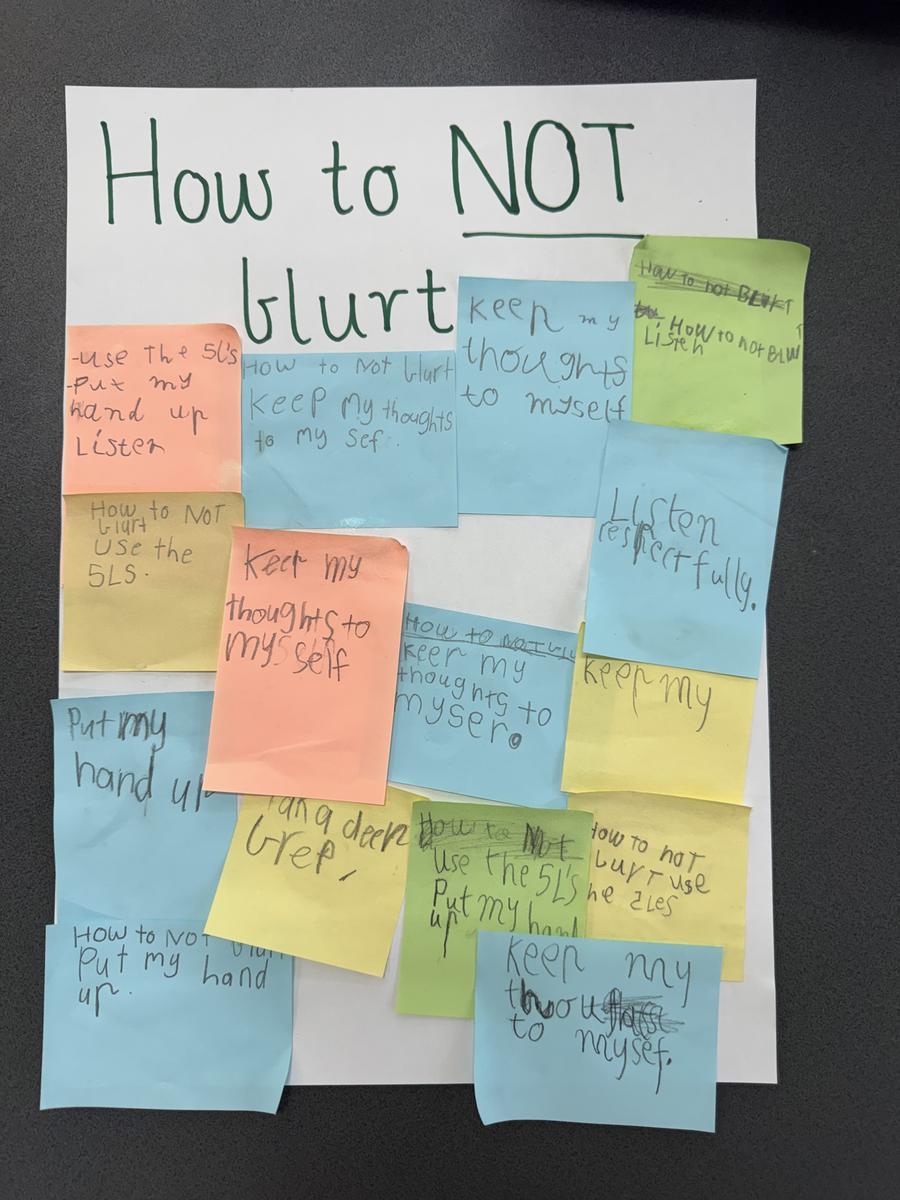 How to NOT
blurt
-use the 5L's
-Put my
hand up
Listen
How to Not blurt
Keep My thoughts
to my sef.
Keep my
thoughts
to myself
How to not BLURT
How to not BLU
Listen
How to NOT
blurt
use the
5LS.
Keep my
thoughts to
myself
How to NOT
keep my
thoughts to
myser.
Listen
respectfully.
keep my
Put my
hand up
a deep
brep,
How to Not
use the 5L's
Put my hand
up
How to not
burt use
he 2les
How to NOT
Put my hand
up.
Keep my
to mysef.